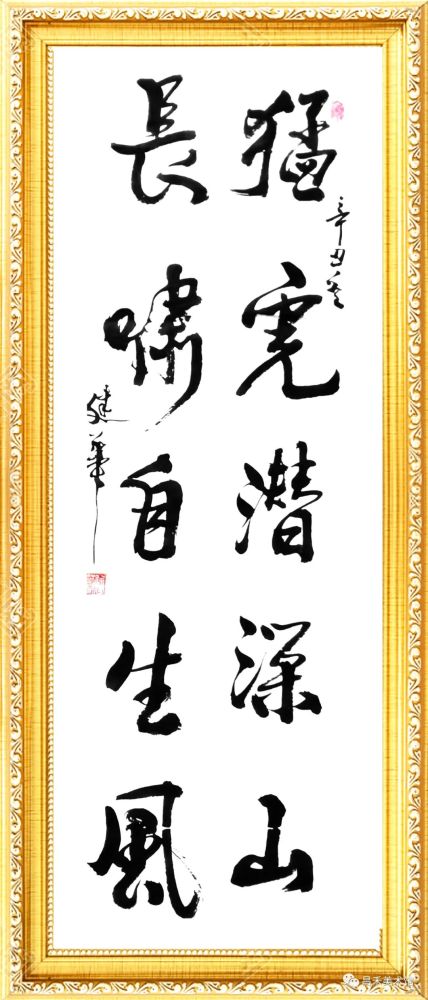 辛丑冬
猛虎潜深山
長嘯自生風
華